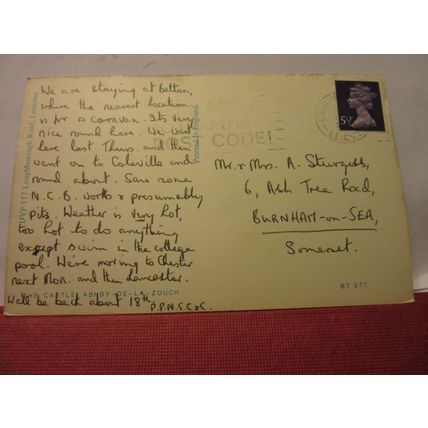 We are staying at Belton,
where the nearest location
is for a caravan. Its very
nice round here. We went
here last Thurs. and then
went on to Coleville and
round about. Saw some
N.C.B. works & presumably
pits. Weather is very hot,
too hot to do anything
except swim in the college
pool. We're moving to Chester
next Mon. and then Lancaster.
We'll be back about 18th
D.P.N.S.C&C.
THE CASTLE, ASHBY-DE-LA-ZOUCH
117 Loughborough Road, Leicester.
Printed in England
THE
CODE!
LEICS
5P
Mr & Mrs. A. Sturgess,
6, Ash Tree Road,
BURNHAM-on-SEA,
Somerset.
BT 277